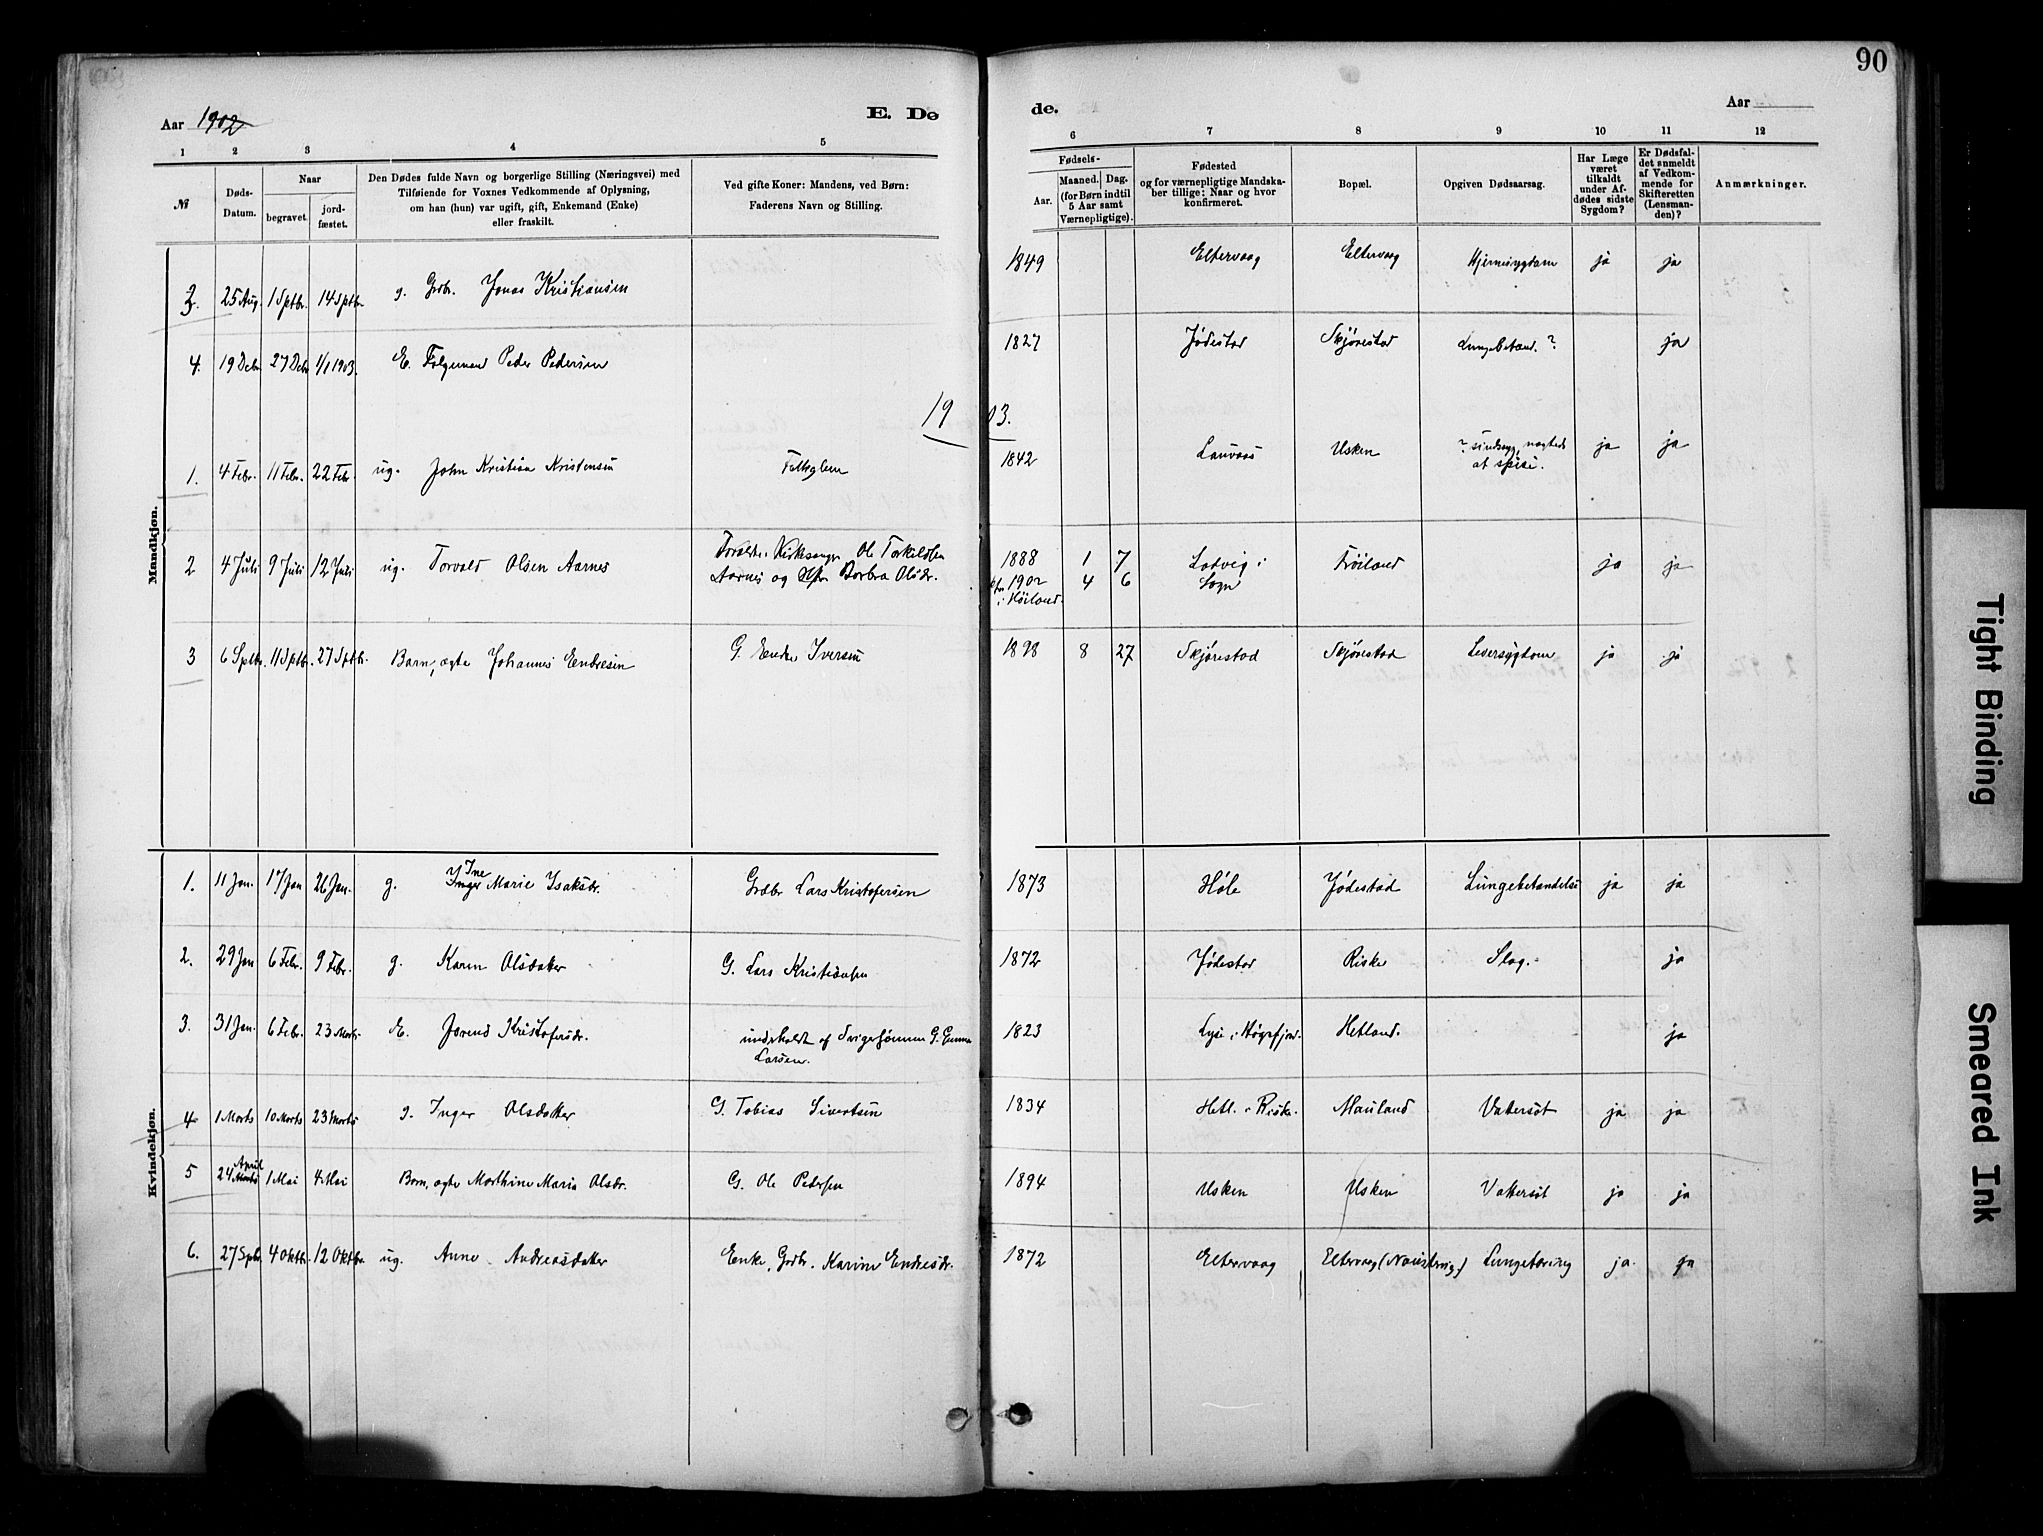 90
Aar 1902
E. Dø
de.
Aar
1 2 3 4 5 6 7 8 9 10 11 12
№
Døds-Datum.
Naar
begravet.
jord-fæstet.
Den Dødes fulde Navn og borgerlige Stilling (Næringsvei) med
Tilføiende for Voxnes Vedkommende af Oplysning,
om han (hun) var ugift, gift, Enkemand (Enke)
eller fraskilt.
Ved gifte Koner: Mandens, ved Børn:
Faderens Navn og Stilling.
Fødsels-
Aar.
Maaned. Dag.
(for Børn indtil
5 Aar samt
Værnepligtige).
Fødested
og for værnepligtige Mandska-
ber tillige: Naar og hvor
konfirmeret.
Bopæl.
Opgiven Dødsaarsag.
Har Læge
været
tilkaldt
under Af-
dødes sidste
Sygdom?
Er Dødsfal-
det anmeldt
af Vedkom-
mende for
Skifteretten
(Lensman-
den)?
Anmærkninger.
Mandkjøn.
3. 25 Aug. 1 Sptbr. 14 Sptbr. g. Grdbr. Jonas Kristiansen 1849 Eltervaag Eltervaag Hjernesygdom ja ja
4. 19 Debr. 27 Debr. 1/1 1903. E. Følgemand Peder Pedersen 1827 Jødestad Skjørestad Lungebetænd. ? ja
19 03.
1. 4 Febr. 11 Febr. 22 Febr. ug. John Kristian Kristensen 1842 Lauvaas Usken ? sindssyg, nægtede
at spise. ja ja
2 4 Juli 9 Juli 12 Juli ug. Torvald Olsen Aarnes Kirksanger Ole Torkildsen
Aarnes og Barbra Olsdr. 1888 1 7 Ladvig i
Sogn Frøiland ja ja
1902 4 6
i Høiland.
3 6 Sptbr. 11 Sptbr. 27 Sptbr. Barn, ægte Johannes Endresen G. Endre Iversen 1898 8 27 Skjørestad Skjørestad Leversygdom ja ja
Kvindekjøn.
1. 11 Jan. 17 Jan 26 Jan. g. Ine
Inger Marie Isaksdr. Grdbr Lars Kristofersen 1873 Høle Jødestad Lungebetændelse ja ja
2. 29 Jan 6 Febr. 9 Febr. g. Karen Olsdatter G. Lars Kristiansen 1872 Jødestad Riske Slag. ja
3. 31 Jan. 6 Febr. 23 Marts E. Kristofersdr. underholdt af Svigersønnen G. Gunnar
Larsen. 1823 Lyse i Høgsfjord. Hetland. ja
4 1 Marts 10 Marts 23 Marts g. Inger Olsdatter G. Tobias Sivertsen 1834 Hetl. i Riske. Mauland Vatersot ja ja
5 April
24 Marts 1 Mai 4 Mai Barn, ægte Marthine Maria Olsdr. G. Ole Pedersen 1894 Usken Usken Vattersot ja ja
6. 27 Sptb. 4 Oktbr. 12 Oktbr. ug. Anne Andreasdatter Enke, Grdbr. Karine Endresdr. 1872 Eltervaag Eltervaag Lungetæring ja ja
Tight Binding
Smeared Ink